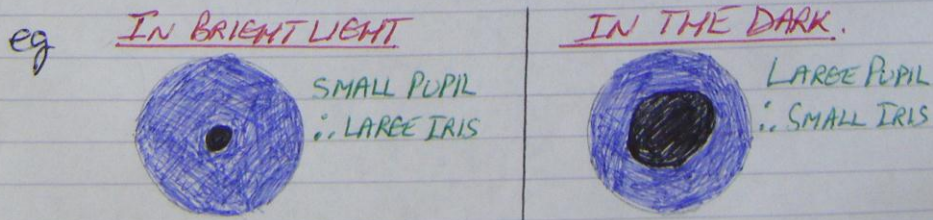 eg
IN BRIGHT LIGHT
SMALL PUPIL
∴ LARGE IRIS
IN THE DARK.
LARGE PUPIL
∴ SMALL IRIS